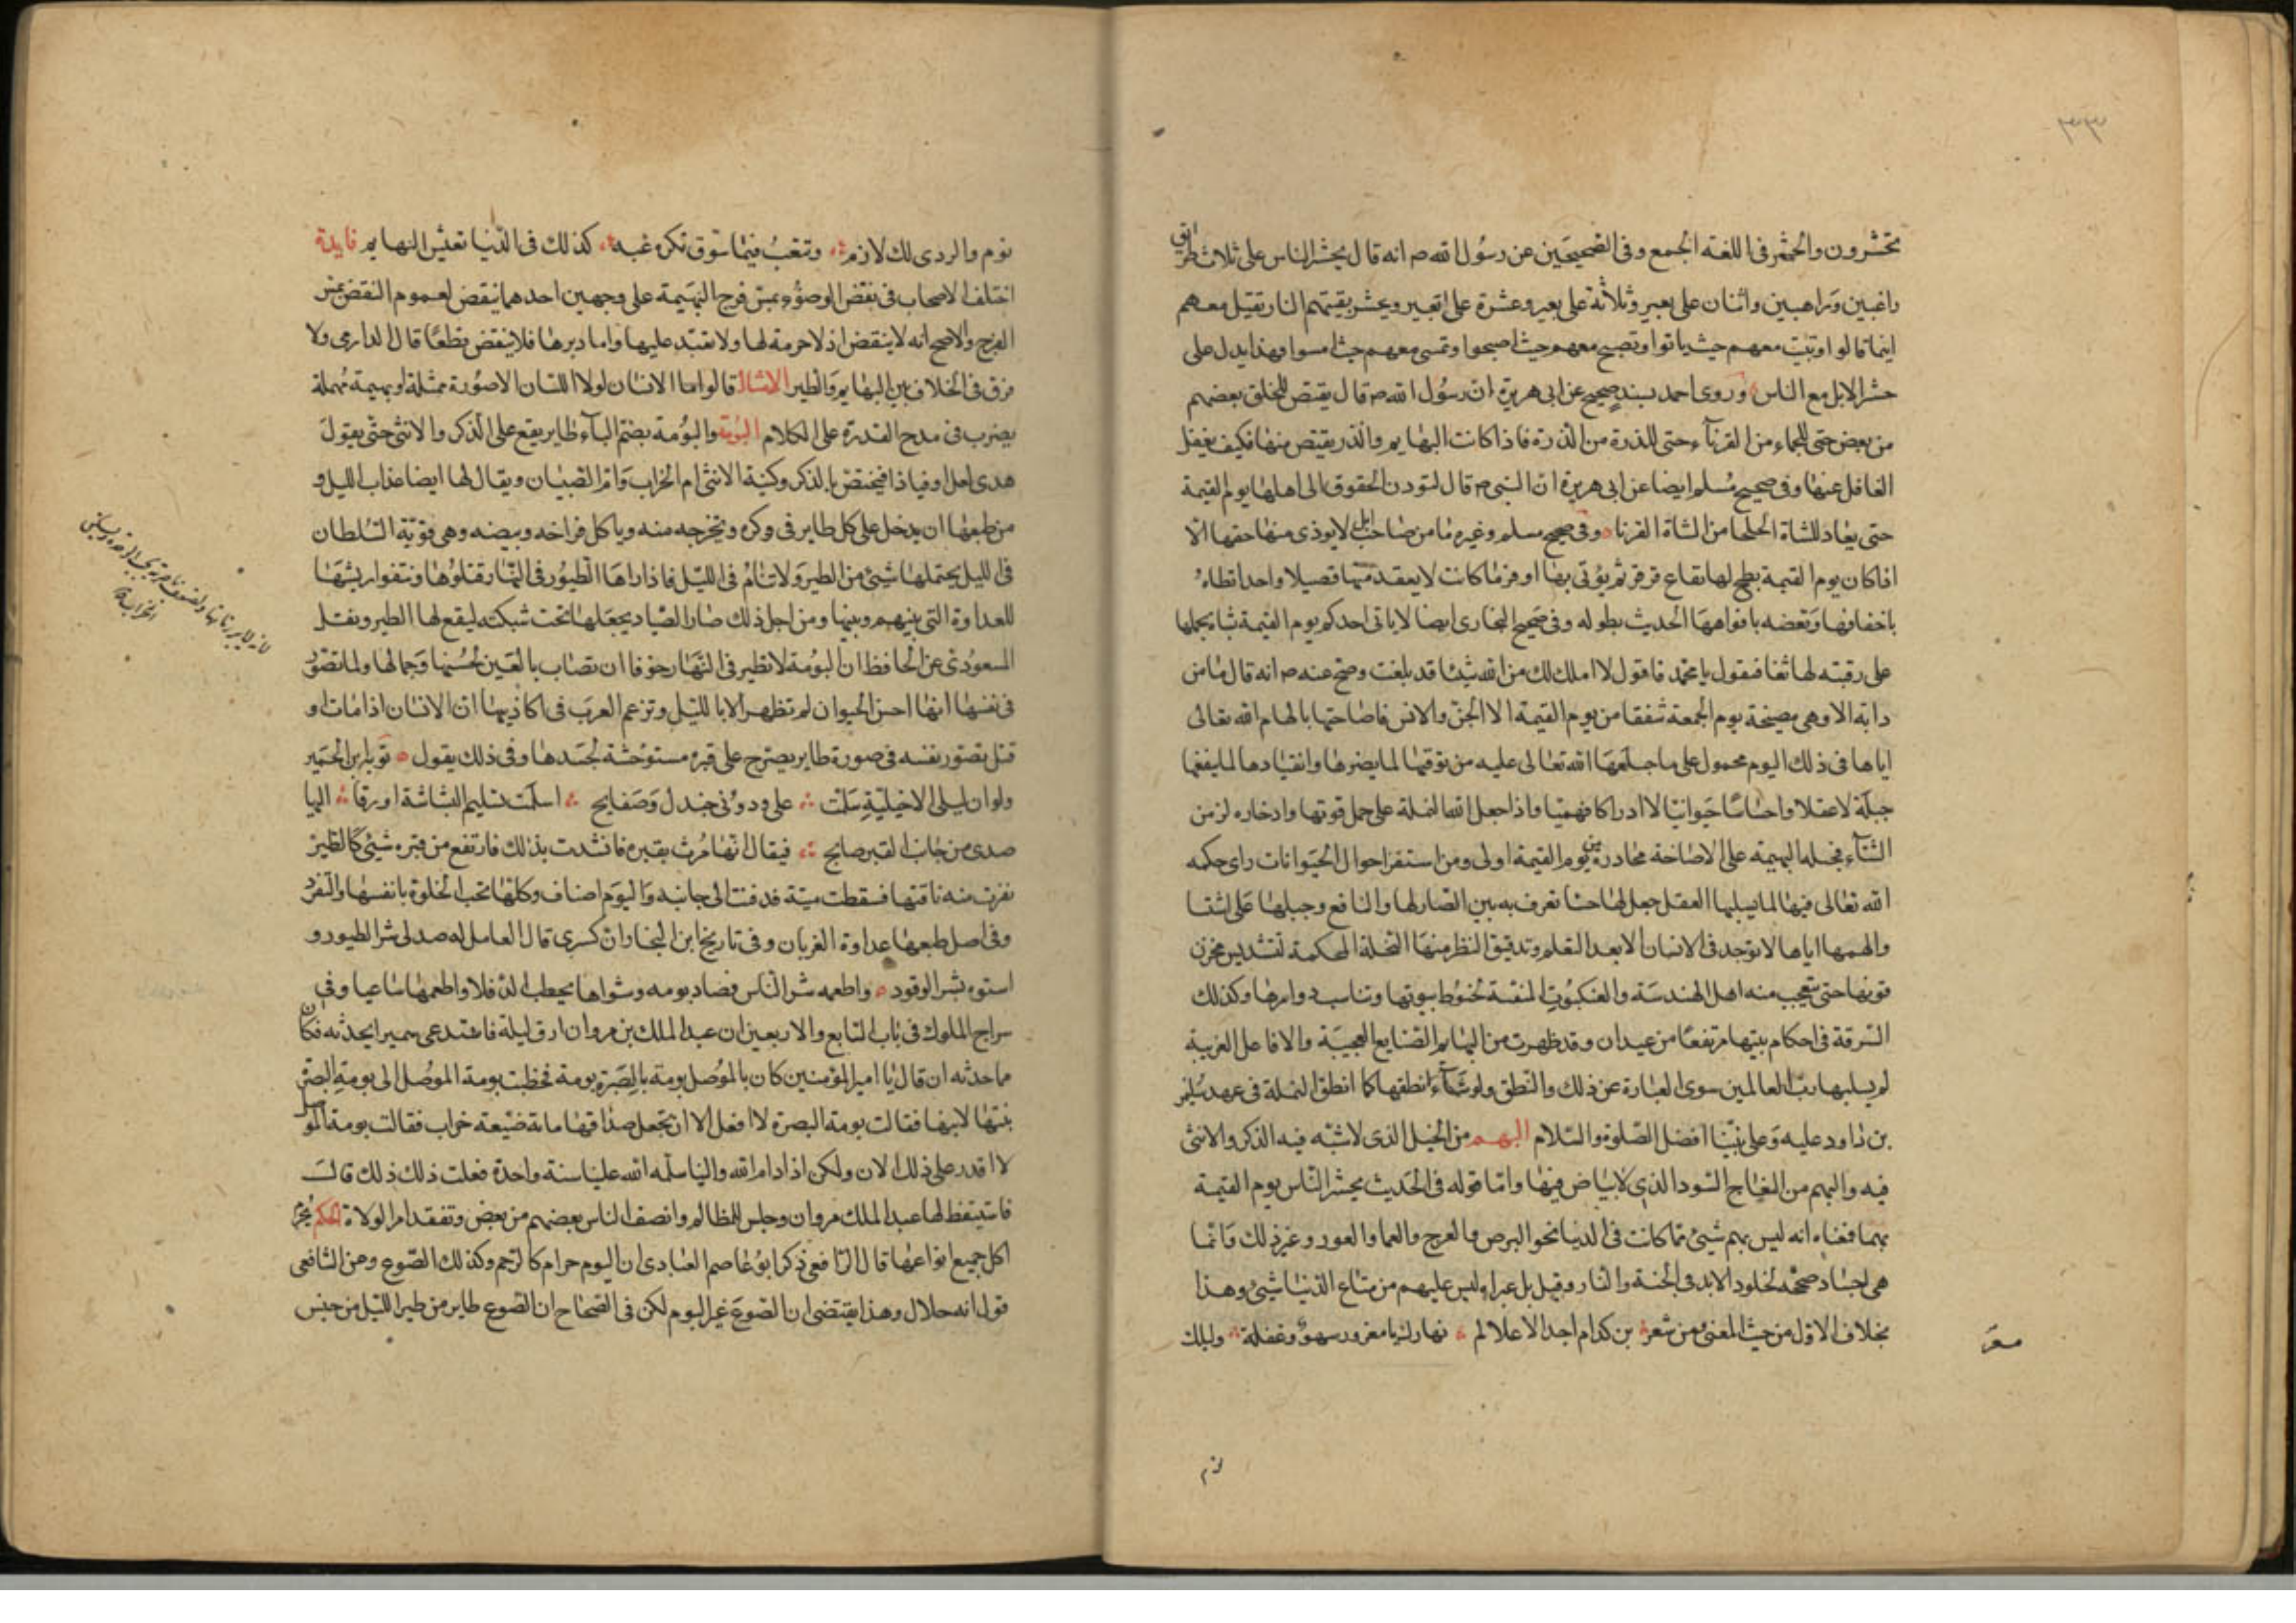 ٣٣
تحشرون والحشر فى اللغة الجمع وفى الصحيحين عن رسول الله ص انه قال يحشر الناس على ثلاث طرائق
راغبين وراهبين واثنان على بعير وثلاثة على بعير وعشرة على بعير ويحشر بقيتهم النار تقيل معهم
اينما قالوا وتبيت معهم حيث باتوا وتصبح معهم حيث اصبحوا وتمسى معهم حيث امسوا وهذا يدل على
حشر الابل مع الناس وروى احمد بسند صحيح عن ابى هريرة ان رسول الله ص قال يقتص للخلق بعضهم
من بعض حتى للجماء من القرناء وحتى للذرة من الذرة فاذا كانت البهايم والذر يقتص منها فكيف يغفل
الغافل عنها وفى صحيح مسلم ايضا عن ابى هريرة ان النبى ص قال لتودن الحقوق الى اهلها يوم القيمة
حتى يقاد للشاة الجلحا من الشاة القرنا وفى صحيح مسلم وغيره ما من صاحب ابل لا يوذى منها حقها الا
اذا كان يوم القيمة بطح لها بقاع قرقر ثم يؤتى بها اوفر ما كانت لا يفقد منها فصيلا واحدا تطاه
باخفافها وتعضه بافواهها الحديث بطوله وفى صحيح البخارى ايضا لا ياتى احدكم يوم القيمة بشاة يحملها
على رقبته لها ثغا فيقول يا محمد فاقول لا املك لك من الله شيئا قد بلغت وصح عنه ص انه قال ما من
دابة الا وهى مصيخة يوم الجمعة شفقا من يوم القيمة الا الجن والانس فاصاختها بالهام الله تعالى
اياها فى ذلك اليوم محمول على ما جبلها الله تعالى عليه من توقيها لما يضرها وانقيادها لما ينفعها
جبلة لا عقلا واحساسا حيوانيا لا ادراكا فهميا واذا جعل الله النملة على حمل قوتها وادخاره لزمن
الشتاء فجبله البهيمة على الاصاخة محاذرة من يوم القيمة اولى ومن استقرا احوال الحيوانات راى حكمه
الله تعالى فيها لما سلبها العقل جعل لها حسا تعرف به بين الضار لها والنافع وجبلها على اشيا
والهمها اياها لا توجد فى الانسان الا بعد التعلم وتدقيق النظر منها النحلة المحكمة لتسديس مخزن
قوتها حتى يتعجب منه اهل الهندسة والعنكبوت المتقنة لخيوط بيوتها وتناسب دوايرها وكذلك
السرفة فى احكام بيتها مرتفعا من عيدان وقد ظهرت من البهايم الصنايع العجيبة والافاعل الغريبة
لم يسلبها رب العالمين سوى العبارة عن ذلك والنطق ولو شاء انطقها كما انطق النملة فى عهد سليمن
بن داود عليه وعلى نبينا افضل الصلوة والسلام البهم من الخيل الذى لا شبه فيه الذكر والانثى
فيه والبهم من النعاج السود الذى لا بياض فيها واما قوله فى الحديث يحشر الناس يوم القيمة
بهما فمعناه انه ليس بهم شيئ مما كانت فى الدنيا نحو البرص والعرج والعما والعور وغير ذلك وانما
هى اجساد مصححه لخلود الابد فى الجنة والنار وقيل بل عراه ليس عليهم من متاع الدنيا شيئ وهذا
بخلاف الاول من حيث المعنى ومن شعر بن كدام اجد الاعلام نهارك يا مغرور سهو وغفلة وليلك
مسعر
نوم
نوم والردى لك لازم وتتعب فيما سوف تكره غبه كذلك فى الدنيا تعيش البهايم فايدة
اختلف الاصحاب فى نقض الوضوء بمس فرج البهيمة على وجهين احدهما ينقض لعموم النقض بمس
الفرج والاصح انه لا ينقض اذ لا حرمة لها ولا تتبد عليها واما دبرها فلا ينقض قطعا قال الدارمى ولا
فرق فى الخلاف بين البهايم والطير الامثال قالوا ما الانسان لولا اللسان الا صورة ممثلة او بهيمة مهملة
يضرب فى مدح القدرة على الكلام البومة والبومة بضم الباء طاير يقع على الذكر والانثى حتى يقول
صدى او فياد فيختص بالذكر وكنية الانثى ام الخراب وام الصبيان ويقال لها ايضا غراب الليل و
من طبعها ان يدخل على كل طاير فى وكره ويخرجه منه وياكل فراخه وبيضه وهى قوية السلطان
فى الليل يحتملها شيئ من الطير ولا تنام فى الليل فاذا راها الطيور فى النهار قتلوها ونتفوا ريشها
للعداوة التى بينهم وبينها ومن اجل ذلك صار الصياد يجعلها تحت شبكته ليقع لها الطير ونقل
المسعودى عن الحافظ ان البومة لا تطير فى النهار خوفا ان تصاب بالعين لحسنها وجمالها ولما تصور
فى نفسها انها احسن الحيوان لم تظهر الا بالليل وتزعم العرب فى اكاذيبها ان الانسان اذا مات او
قتل تصور نفسه فى صورة طاير يصرخ على قبره مستوحشة لجسدها وفى ذلك يقول توبة بن الحمير
ولو ان ليلى الاخيلية سلمت على ودونى جندل وصفايح اسلمت تسليم البشاشة او زقا اليها
صدى من جانب القبر صايح فيقال انها مرت بقبره فانشدت بذلك فارتفع من قبره شيئ كالطير
نفرت منه ناقتها فسقطت ميتة فدفنت الى جانبه واليوم اصناف وكلها تحب الخلوة بانفسها والتفرد
وفى اصل طبعها عداوة الغربان وفى تاريخ ابن النجار ان كسرى قال لعامل له صد لى شر الطيور و
استوه بشر الوقود واطعمه شر الناس فصاد بومه وشواها بحطب الدفلا واطعمها ساعيا وفى
سراج الملوك فى باب السابع والاربعين ان عبد الملك بن مروان ارق ليلة فاستدعى سميرا يحدثه فكان
مما حدثه ان قال يا امير المؤمنين كان بالموصل بومة بالبصرة بومة فخطبت بومة الموصل الى بومة البصرة
بنتها لابنها فقالت بومة البصرة لا افعل الا ان تجعل صداقها ماية ضيعة خراب فقالت بومة الموصل
لا اقدر على ذلك الان ولكن اذا دام الله والينا سلمه الله علينا سنة واحدة فعلت ذلك ذلك قالت
فاستيقظ لها عبد الملك مروان وجلس للمظالم وانصف الناس بعضهم من بعض وتفقد امر الولاة الحكم يحرم
اكل جميع انواعها قال الرافعى ذكر ابو عاصم العبادى ان البوم حرام كالرخم وكذلك الضوع وعن الشافعى
قول انه حلال وهذا يقتضى ان الضوع غير البوم لكن فى الصحاح ان الضوع طاير من طير الليل من جنس